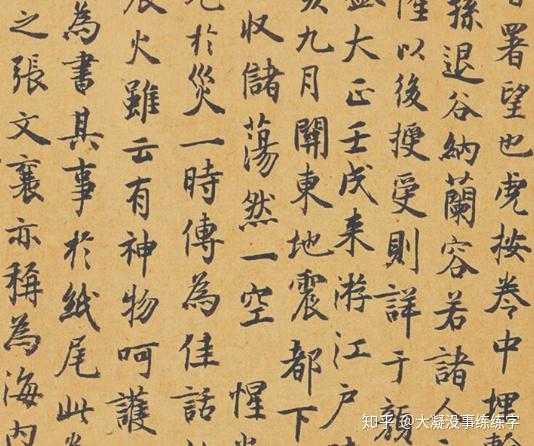 署望也虎按卷中埋
孫退谷納蘭容若諸人
隆以後授受則詳于顏
大正壬戌来游江戶
亥九月關東地震都下
收儲蕩然一空惺
於災一時傳為佳話
火雖云有神物呵護
為書其事於紙尾此
之張文襄亦稱為海內
知乎 @大凝没事练练字